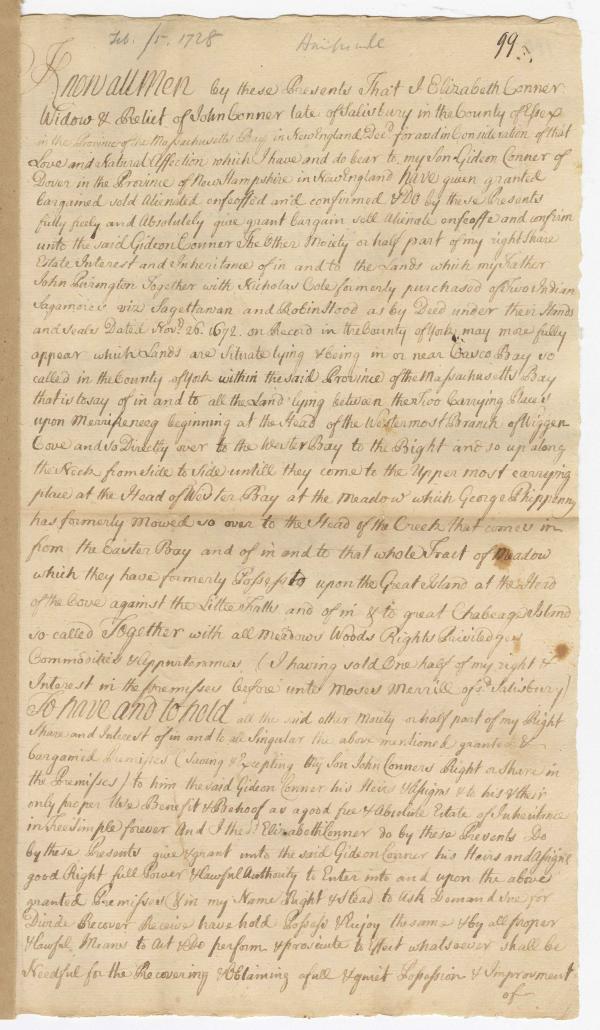 Feb. /5. 1728 Harpswell 99.
Know all Men by these Presents That I Elizabeth Conner
Widow & Relict of John Conner late of Salisbury in the County of Essex
in the Province of the Massachusetts Bay in New England Decd. for and in Consideration of that
Love and Natural Affection which I have and do bear to my Son Gideon Conner of
Dover in the Province of New Hampshire in New England have given granted
bargained sold Alienated enfeoffed and confirmed & Do by these Presents
fully freely and Absolutely give grant bargain sell Alienate enfeoffe and confirm
unto the said Gideon Conner The Other Moiety or half part of my right Share
Estate Interest and Inheritance of in and to the Lands which my Father
John Purington Together with Nicholas Cole formerly purchased of Two Indian
Sagamores viz Sagettawan and Robin Hood as by Deed under their Hands
and Seals Dated Novr. 26. 1672. on Record in the County of York may more fully
appear which Lands are Situate lying & being in or near Casco Bay so
called in the County of York within the said Province of the Massachusetts Bay
that is to say of in and to all the Land lying between the Two Carrying Places
upon Merrikeneeg beginning at the Head of the Westermost Branch of Wiggen
Cove and so Directly over to the Wester Bay to the Bight and so up along
the Neck from Side to Side untill they come to the Upper most carrying
place at the Head of Wester Bay at the Meadow which George Phippenny
has formerly Mowed so over to the Head of the Creek that comes in
from the Easter Bay and of in and to that whole Tract of Meadow
which they have formerly Possest to upon the Great Island at the Head
of the Cove against the Little Falls and of in & to great Chabeage Island
so called Together with all Meadows Woods Rights Priviledges
Commodities & Appurtenances (I having sold One half of my right &
Interest in the premisses before unto Moses Merrill of sd. Salisbury)
To have and to hold all the said other Moiety or half part of my Right
Share and Interest of in and to all Singular the above mentioned granted &
bargained Premisses (Saving & Excepting My Son John Conners Right or Share in
the Premisses) to him the said Gideon Conner his Heirs & Assigns & to his & their
only proper Use Benefit & Behoof as a good free & Absolute Estate of Inheritance
in Fee Simple forever And I the sd. Elizabeth Conner do by these Presents Do
by these Presents give & grant unto the said Gideon Conner his Heirs and Assigns
good Right full Power & Lawful Authority to Enter into and upon the above
granted Premisses (& in my Name Right & Stead to Ask Demand Sue for
Divide Recover Receive have hold Possess & Enjoy the same & by all proper
& Lawful Means to Act & Do perform & prosecute to Effect whatsoever shall be
Needful for the Recovering & Obtaining a full & quiet Possession & Improvment
of